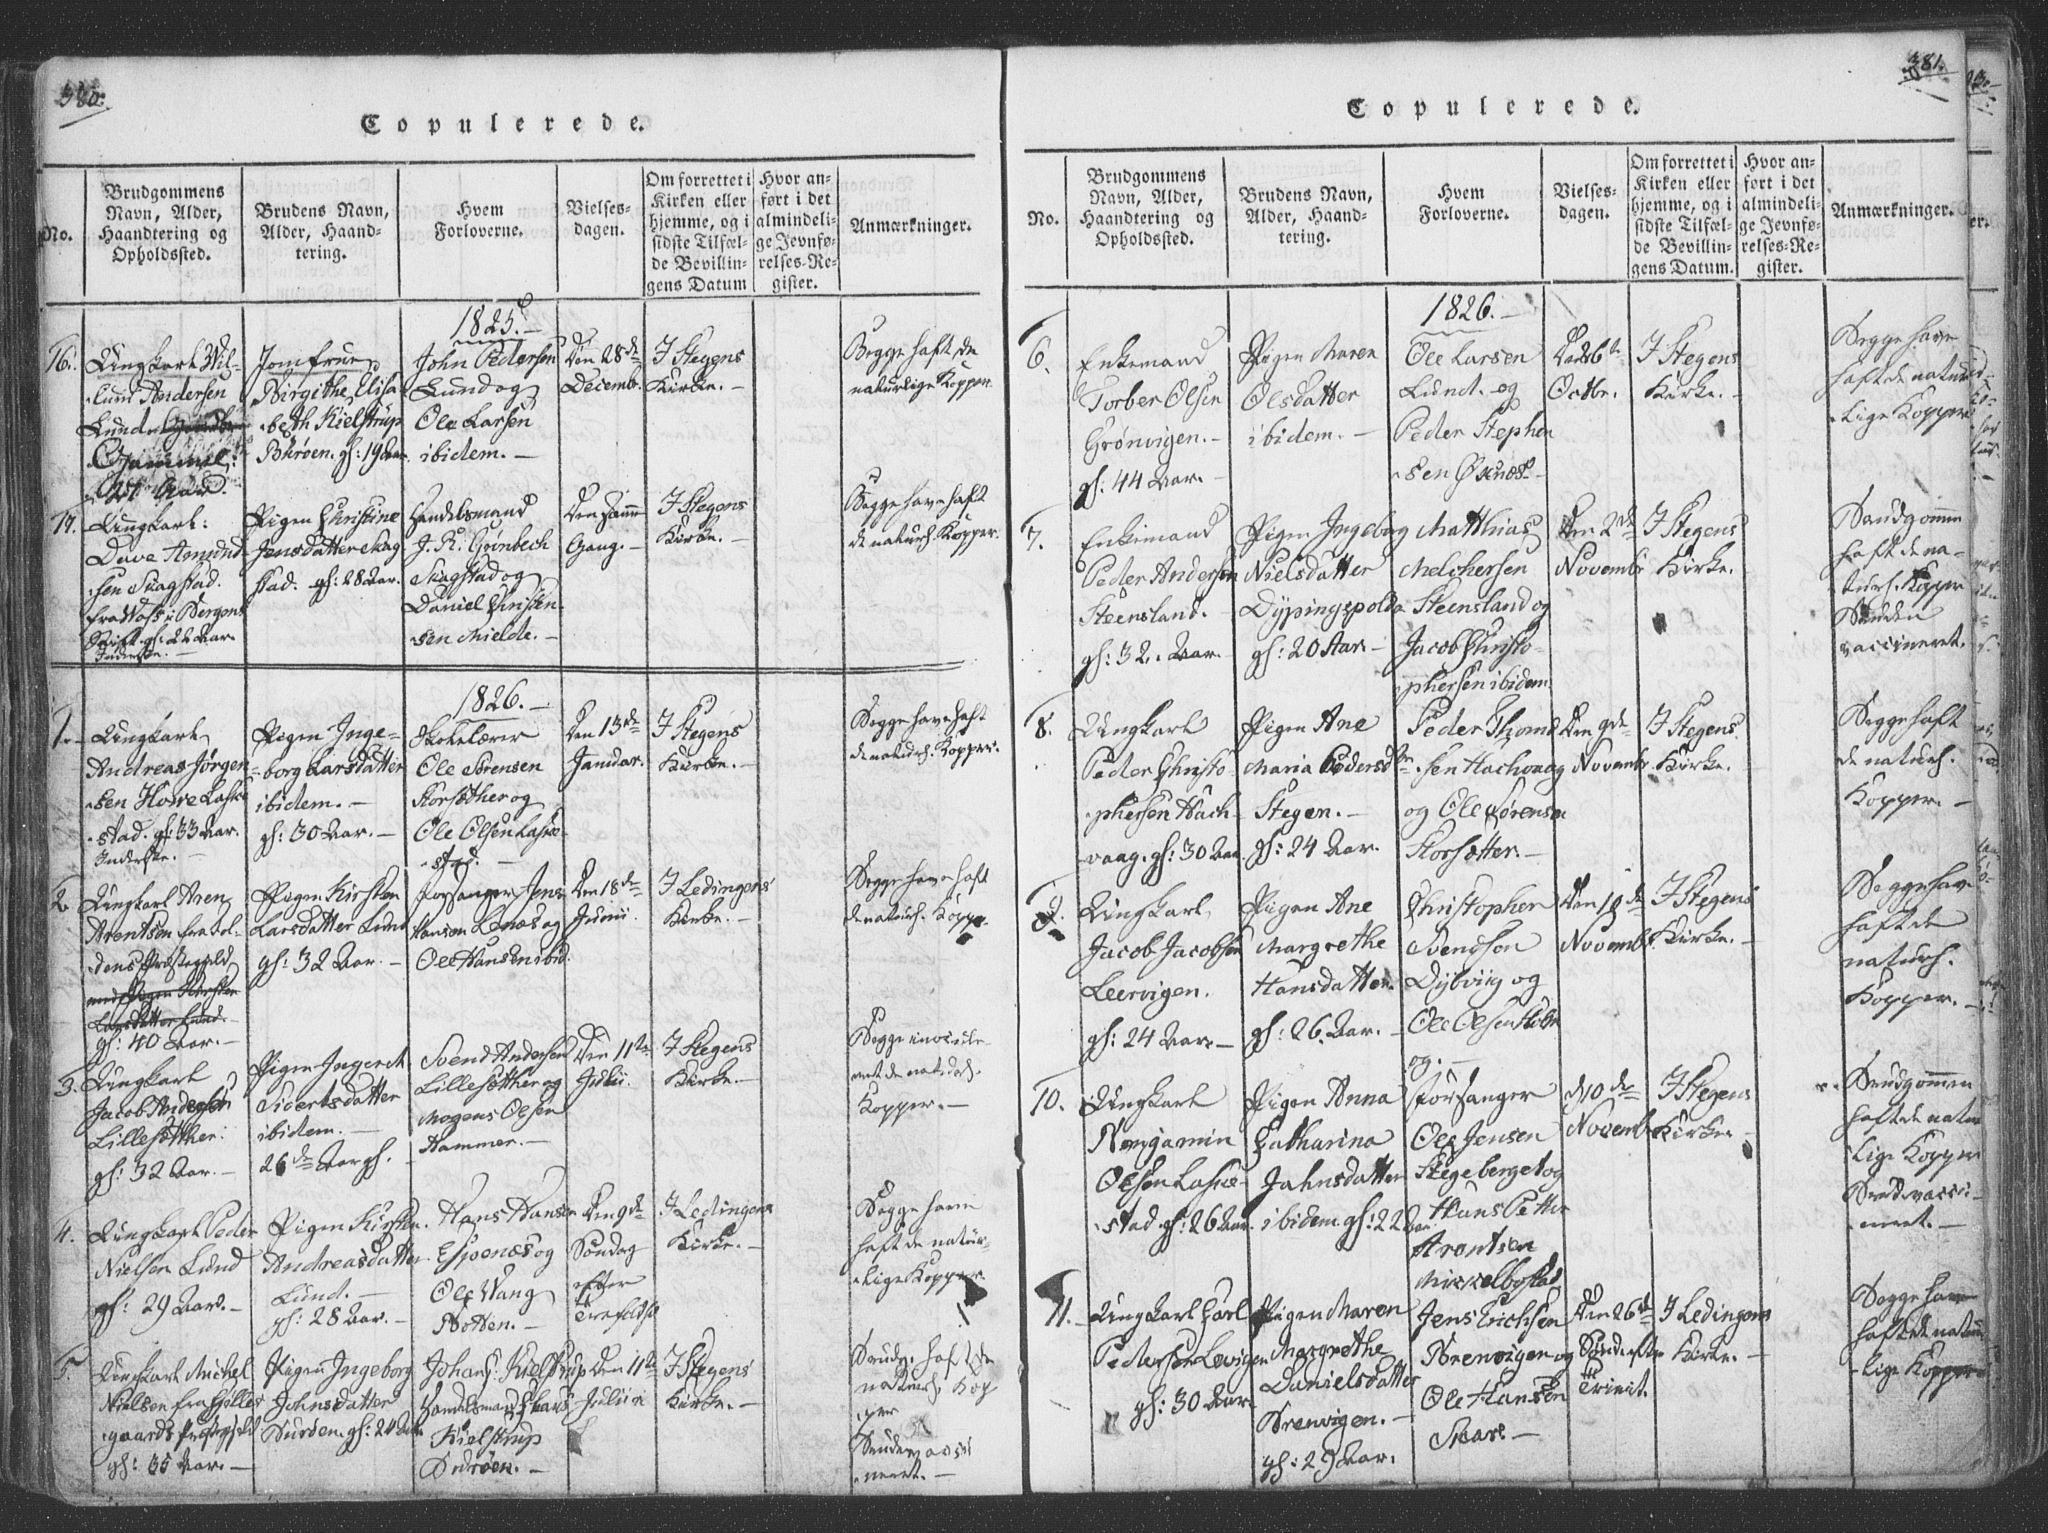 380.
Copulerede.
No.
Brudgommens
Navn, Alder,
Haandtering og
Opholdssted.
Brudens Navn,
Alder, Haand-
tering.
Hvem
Forloverne.
Vielses-
dagen.
Om forrettet i
Kirken eller
hjemme, og i
sidste Tilfæl-
de Bevillin-
gens Datum
Hvor an-
ført i det
almindeli-
ge Jevnfø-
relses-Re-
gister.
Anmærkninger.
1825.
16.
Ungkarl
Andersen
Lund
Gammel:
21 Aar.
Jomfrue
Birgithe Elisa-
beth Kielstrup
Burøen. gl: 19 Aar
John Pedersen
Lund og
Ole Larsen
ibidem.
Den 28de
Decemb.
I Stegens
Kirke.
Begge haft de
naturlige Kopper.
17.
Ungkarl
Dave Amund-
sen Skagstad.
fra Woss i Bergens
Stift. gl: 22 Aar.
Inderste.
Pigen Christine
Jensdatter Skag-
stad. gl: 28 Aar.
Handelsmand
J. K. Grønbech
Skagstad og
Daniel Christen-
sen Mielde.
Den samme
Gang.
I Stegens
Kirke.
Begge have haft
de naturl. Kopper.
1826.
1.
Ungkarl
Andreas Jørgen-
sen
stad. gl: 33 Aar.
Inderste.
Pigen Inge-
borg Larsdatter
ibidem.
gl: 30 Aar.
Skolelærer
Ole Sørensen
Storsæther og
Ole Olsen Laske-
stad.
Den 13de
Januar.
I Stegens
Kirke.
Begge have haft
de naturl. Kopper.
2.
Ungkarl Aren
Arentsen fra
dens Præstegield
med Pigen Kirsten
Larsdatter Lund.
gl: 40 Aar.
Pigen Kirsten
Larsdatter Lund
gl: 32 Aar.
Forsanger Jens
Hansen og
Ole Hansen ibid.
Den 18de
Junii.
I Ledingens
Kirke.
Begge have haft
de naturl. Kopper.
3.
Ungkarl
Jacob Andersen
Lillesæther.
gl: 32 Aar.
Pigen Ingeret
Sivertsdatter
ibidem.
26de Aar gl.
Svend Andersen
Lillesæther og
Mogens Olsen
Hammer.
Den 11te
Julii.
I Stegens
Kirke.
Begge inocule-
ret de naturl.
Kopper.
4.
Ungkarl Peder
Nielsen Lund
gl: 29 Aar.
Pigen Kirsten
Andreasdatter
Lund.
gl: 28 Aar.
Hans Hansen
Espenæs og
Ole Wang
Botten.
Den 9de
Søndag
efter
Trefoldigh.
I Ledingens
Kirke.
Begge have
haft de natur-
lige Kopper.
5.
Ungkarl Michel
Nielsen fra Fjølles-
gaards Præstegield
gl: 35 Aar.
Pigen Ingeborg
Johnsdatter
Burøen. gl: 24 Aar
Johans: Kielstrup
Handelsmand Lars
Kielstrup
Burøen.
Den 11te
Julii
I Stegens
Kirke.
Brudg. haft de
naturl. Kop-
per
Bruden vacci-
neret.
381.
Copulerede.
No.
Brudgommens
Navn, Alder,
Haandtering og
Opholdssted.
Brudens Navn,
Alder, Haand-
tering.
Hvem
Forloverne.
Vielses-
dagen.
Om forrettet i
Kirken eller
hjemme, og i
sidste Tilfæl-
de Bevillin-
gens Datum.
Hvor an-
ført i det
almindeli-
ge Jevnfø-
relses-Re-
gister.
Anmærkninger.
1826.
6.
Enkemand
Torber Olsen
Grønvigen.
gl: 44 Aar.
Pigen Maren
Olsdatter
ibidem.
Ole Larsen
Lund. og
Peder Stephen-
sen Øxnæs
Den 6te
Octbr.
I Stegens
Kirke.
Begge have
haft de natur-
lige Kopper
7.
Enkemand
Peder Andersen
Steensland.
gl: 32. Aar.
Pigen Ingeborg
Nielsdatter
Dypingspold
gl: 20 Aar.
Matthias
Melchersen
Steensland og
Jacob Christo-
phersen ibidem.
Den 2de
Novembr
I Stegens
Kirke.
Brudgomm
haft de na-
turl. Kopper
Bruden
vaccineret.
8.
Ungkarl
Peder Christo-
phersen Hach-
vaag. gl: 30 Aar.
Pigen Ane
Maria Pedersdtr
Stegen.
gl: 24 Aar.
Peder Thom-
sen Hachvaag
og Ole Sørensen
Storsætter.
Den 9de
Novembr.
I Stegens
Kirke.
Begge haft
de naturl.
Kopper.
9.
Ungkarl
Jacob Jacobsen
Leervigen.
gl: 24 Aar.
Pigen Ane
Margrethe
Hansdatter.
gl: 26. Aar.
Christopher
Svendsen
Dybviig og
Ole Olsen Holm
og.
Den 10de
Novembr.
I Stegens
Kirke.
Begge have
haft de
naturl.
Kopper.
10.
Ungkarl
Benjamin
Olsen Laske-
stad gl: 26 Aar.
Pigen Anna
Catharina
Jahnsdatter
ibidem. gl: 22 Aar
Forsanger
Ole Jensen
Stegeberget og
Hans Petter
Arentsen
Mickelbostad
d 10de
Novembr
I Stegens
Kirke.
Brudgommen
haft de natur-
lige Kopper
Brud vacci-
neret.
11.
Ungkarl Carl
Pedersen Lovigen
gl: 30 Aar.
Pigen Maren
Margrethe
Danielsdatter
Brenvigen.
gl: 29 Aar.
Jens Erichsen
Brenvigen og
Ole Hansen
Skar.
Den 26de
Sønd. efter
Trinit.
I Ledingens
Kirke.
Begge have
haft de natur-
lige Kopper